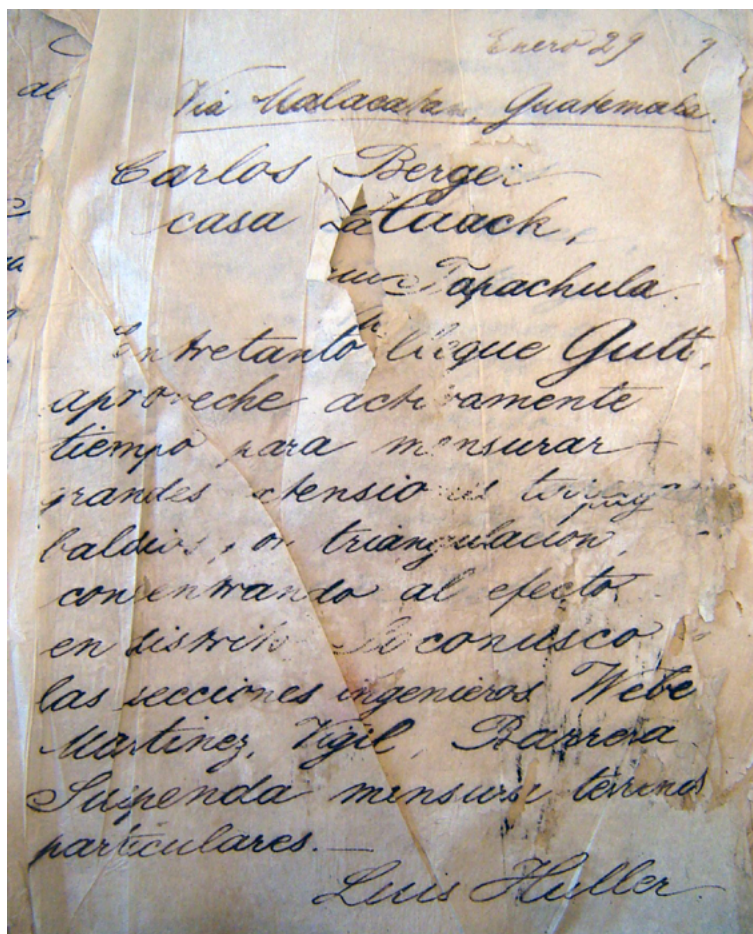 Enero 29
al Via Malacatan, Guatemala.
Carlos Berger
casa Laack,
Tapachula.
Entretanto llegue Gutt,
aproveche activamente
tiempo para mensurar
grandes extensiones
baldios, por triangulacion,
consentrando al efecto
en distrito Soconusco
las secciones ingenieros Webe
Martinez, Vigil, Barrera
Suspenda mensura terrenos
particulares.—
Luis Huller